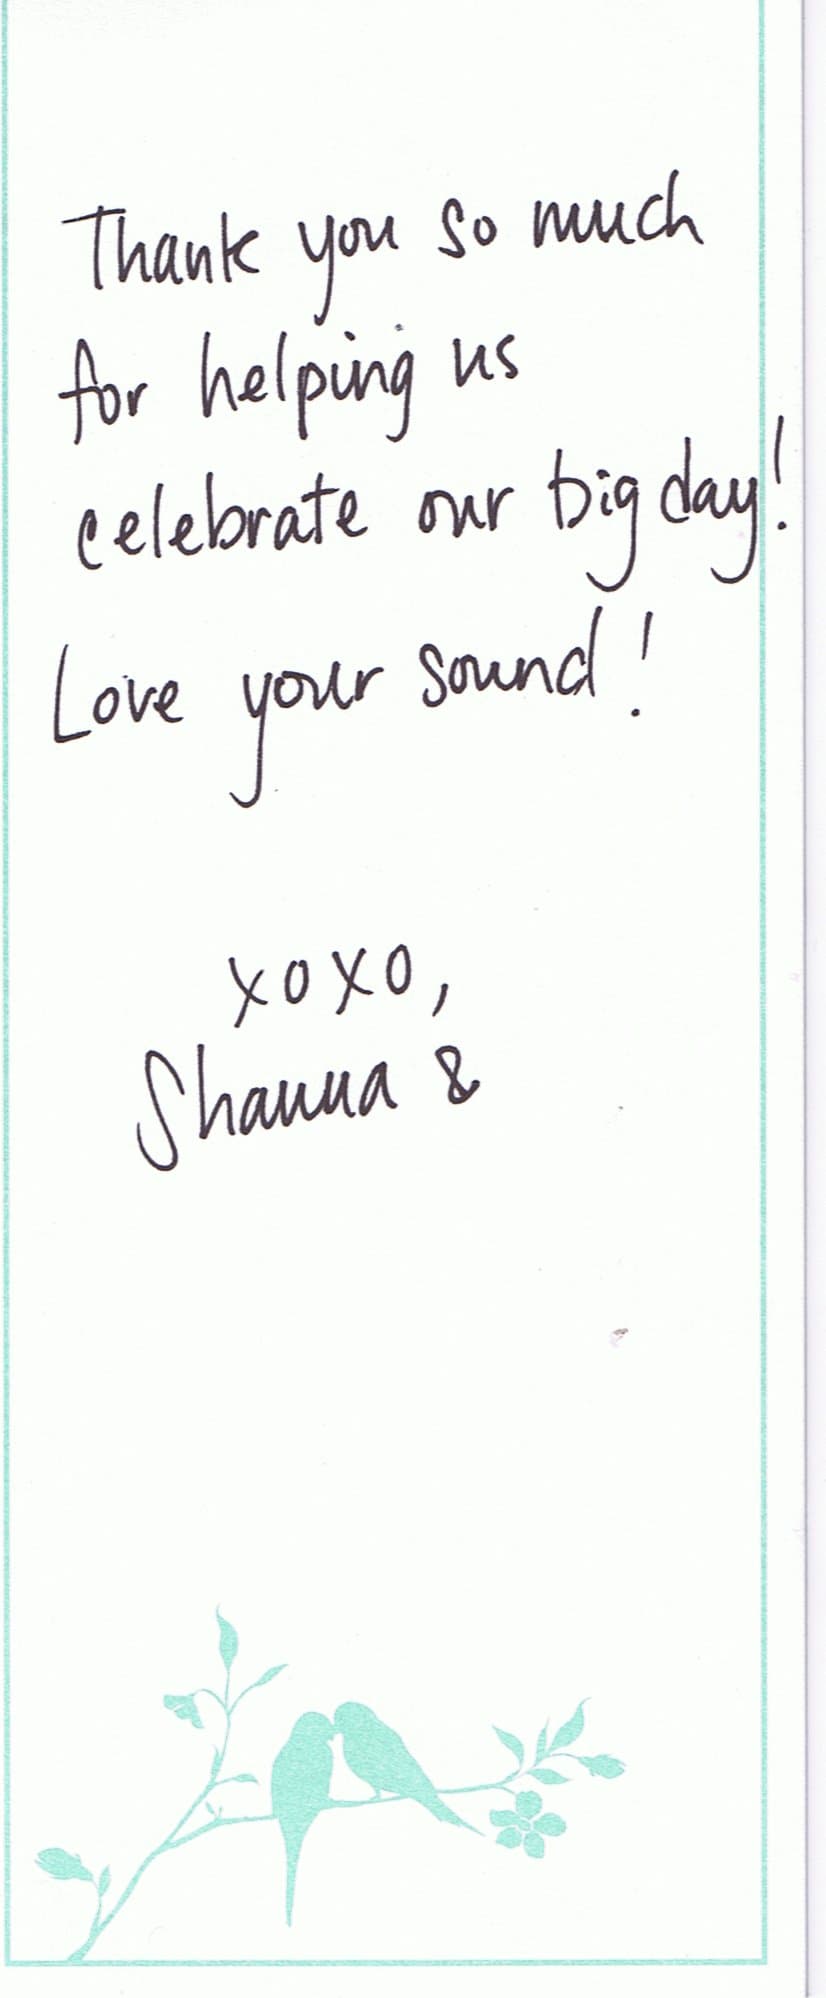 Thank you so much
for helping us
celebrate our big day!
Love your sound!
xoxo,
Shanna &